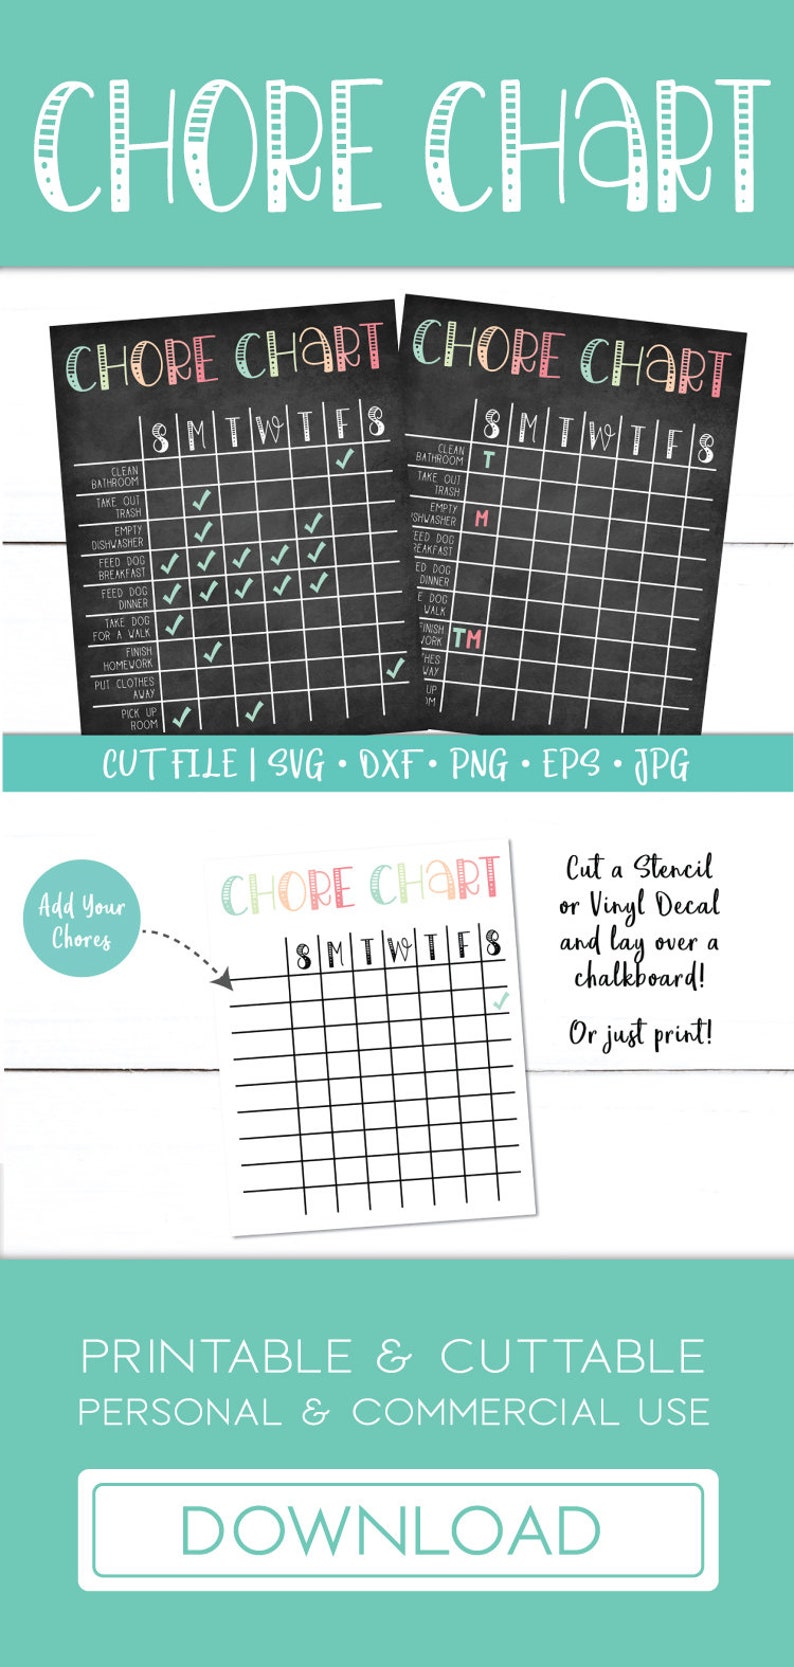 CHORE CHART
CHORE CHART
S M T W T F S
CLEAN
BATHROOM
TAKE OUT
TRASH
EMPTY
DISHWASHER
FEED DOG
BREAKFAST
FEED DOG
DINNER
TAKE DOG
FOR A WALK
FINISH
HOMEWORK
PUT CLOTHES
AWAY
PICK UP
ROOM
CHORE CHART
S M T W T F S
CLEAN
BATHROOM T
TAKE OUT
TRASH
EMPTY
ISHWASHER M
FEED DOG
REAKFAST
EED DOG
DINNER
E DOG
WALK
FINISH
WORK TM
THES
WAY
UP
OM
CUT FILE | SVG • DXF • PNG • EPS • JPG
Add Your
Chores
CHORE CHART
S M T W T F S
Cut a Stencil
or Vinyl Decal
and lay over a
chalkboard!
Or just print!
PRINTABLE & CUTTABLE
PERSONAL & COMMERCIAL USE
DOWNLOAD